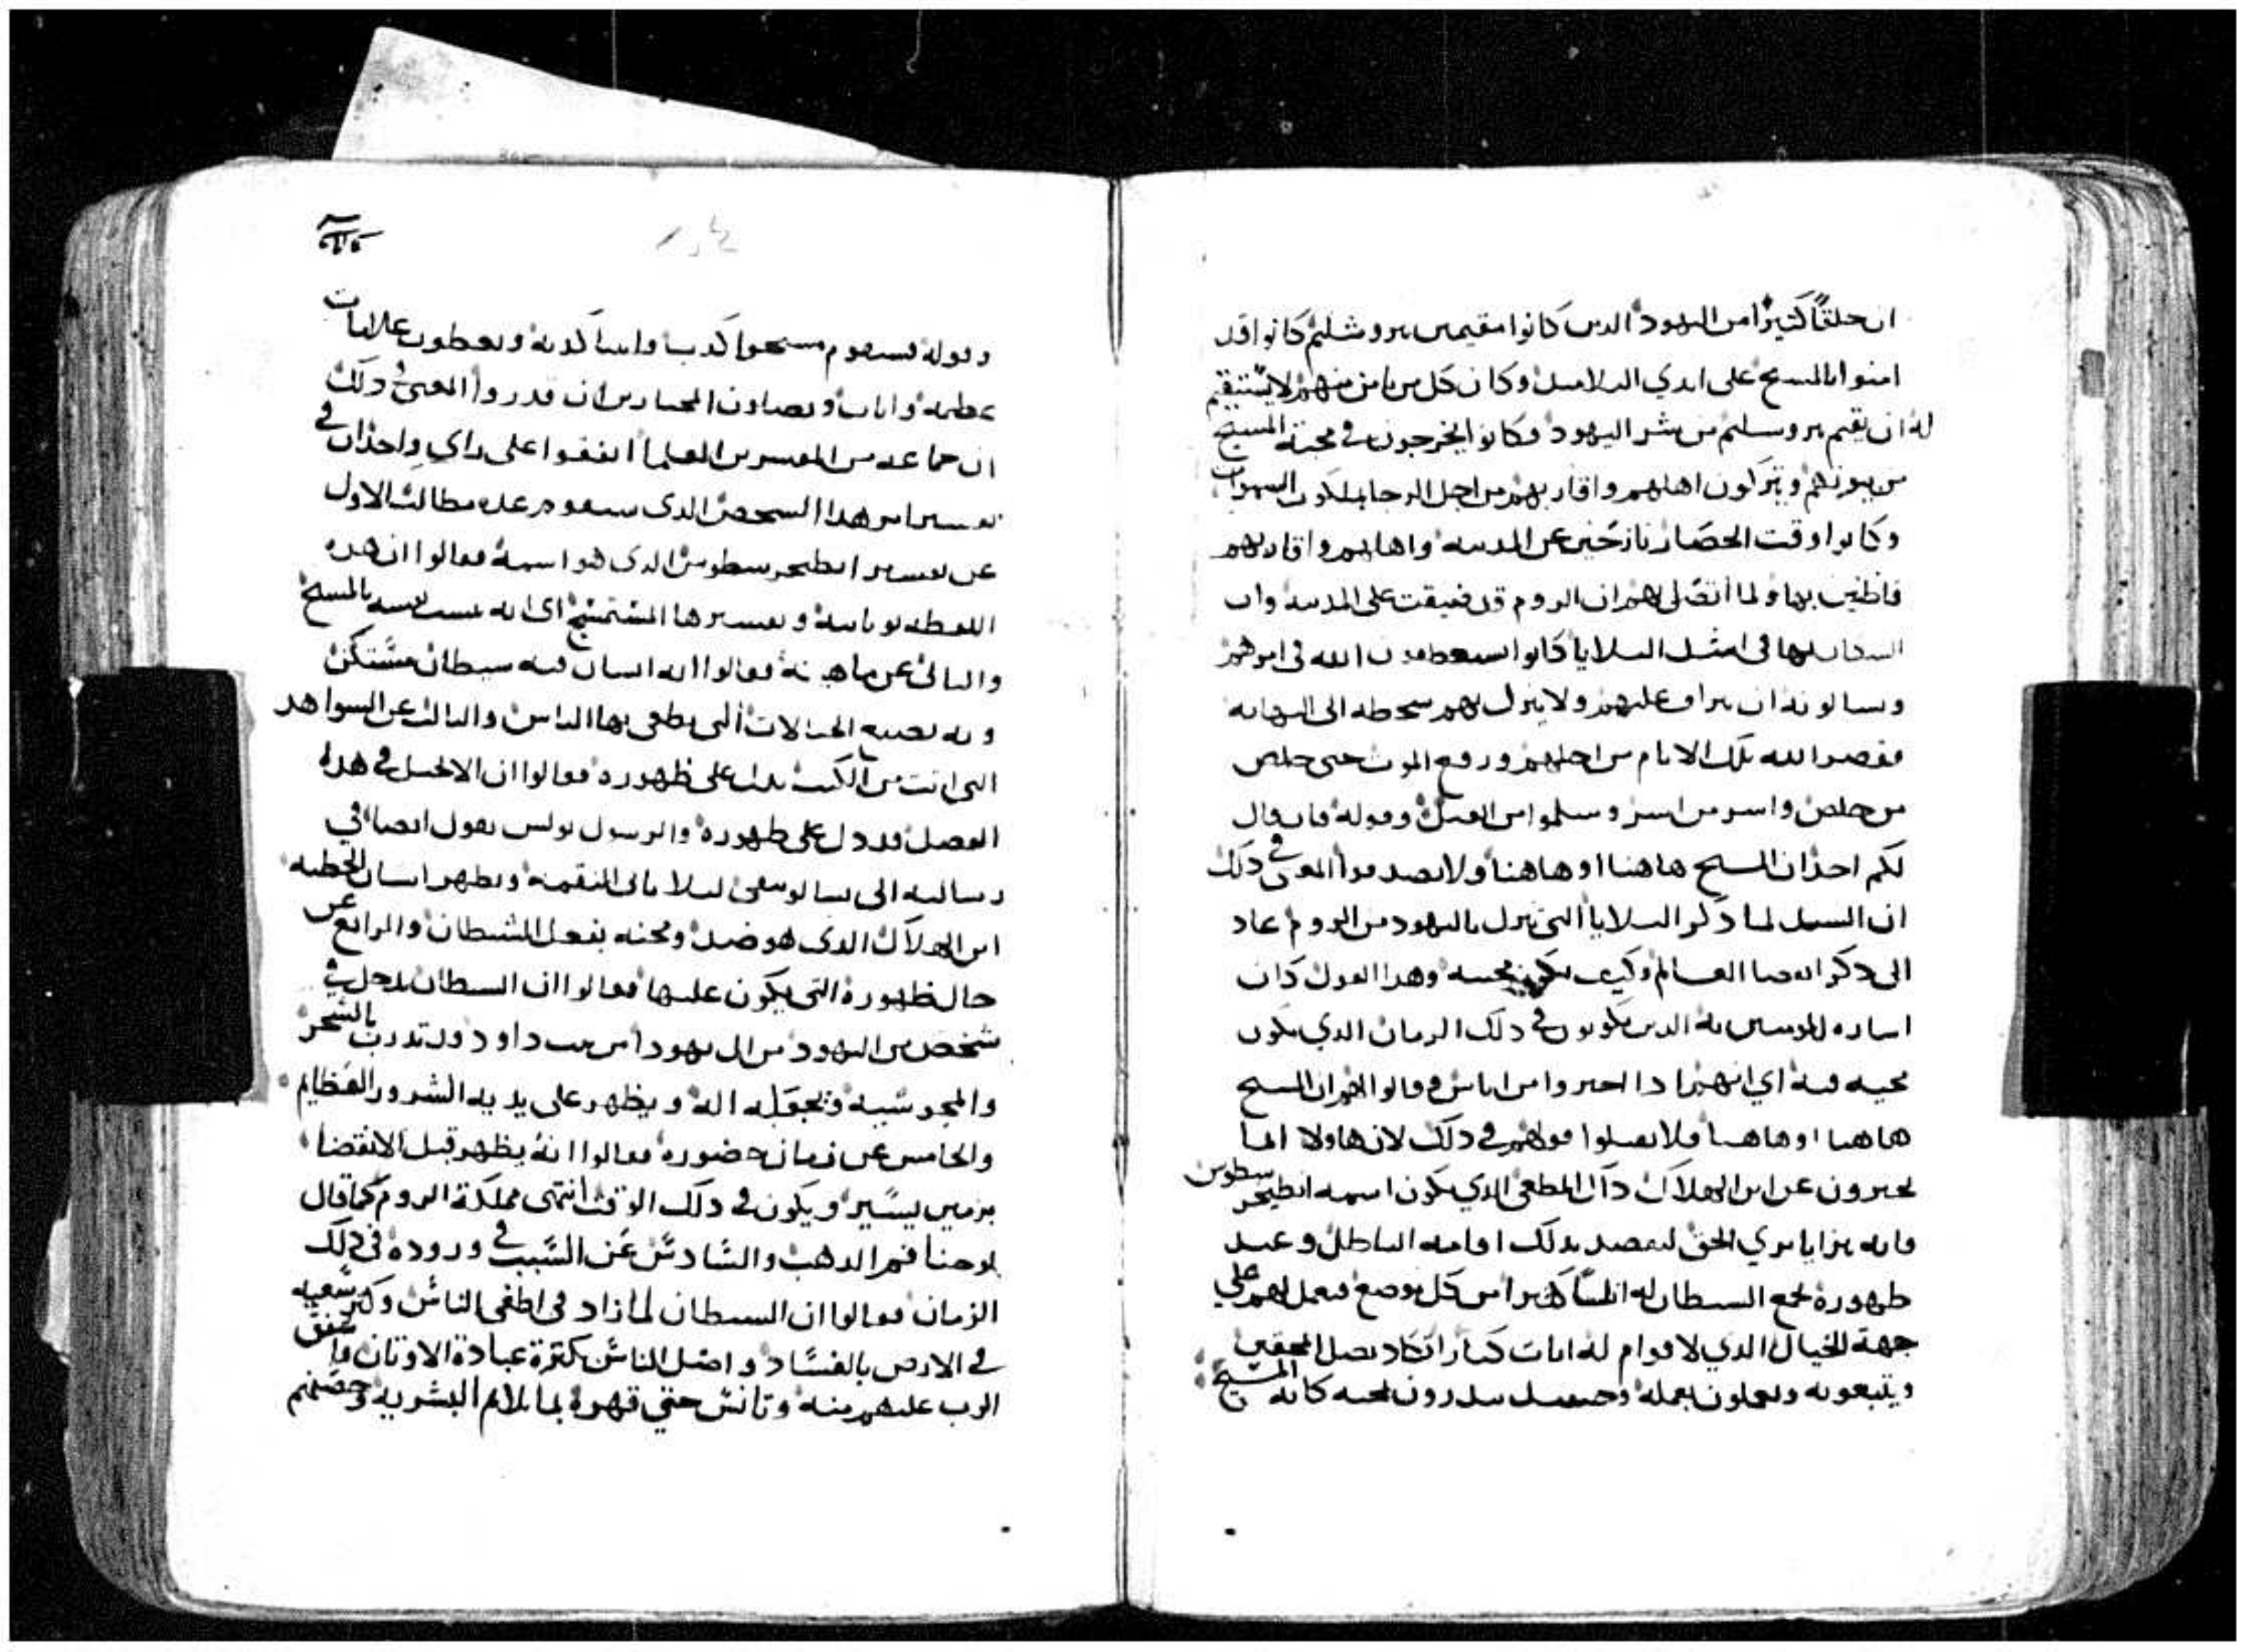 ان خلقًا كثيرًا من اليهود الدين كانوا مقيمين بيروشليم كانوا قد
امنوا بالمسيح على ايدي التلاميد وكان كل من يامن منهم لا يستقيم
له ان يقيم بيروسليم من شر اليهود فكانوا يخرجون في محبة المسيح
من بيوتهم ويتركون اهلهم واقاربهم من اجل الرجا بملكوت السموات
وكانوا وقت الحصار نازحين عن المدينه واهاليهم واقاربهم
قاطنين بها ولما اتصل بهم ان الروم قد ضيقت على المدينه وان
السكان بها في امثل البلايا كانوا يستعطفون الله في امرهم
ويسالونه ان يراف عليهم ولا ينزل بهم سخطه الى النهايه
فقصر الله تلك الايام من اجلهم ورفع الموت حتى خلص
من خلص واسر من اسر وسلموا من القتل وقوله فان قال
لكم احد ان المسيح هاهنا او هاهنا ولا تصدقوا المعنى في دلك
ان السيد لما دكر البلايا التي تنزل باليهود من الروم عاد
الى دكر انقضا العالم وكيف يكون مجييه وهدا القول كان
اشاره للمومنين به الدين يكونون في دلك الزمان الدي يكون
مجييه فيه اي انهم ادا اخبروا من اناس وقالوا لهم ان المسيح
هاهنا او هاهنا فلا يقبلوا قولهم في دلك لان هاولا انما
يخبرون عن ابن الهلاك داك المطغي الدي يكون اسمه انطيخرسطوس
فانه يتزايا بزي الحق ليقصد بدلك اقامه الباطل وعند
ظهوره يجمع الشيطان له العساكر من كل موضع فيعمل لهم على
جهة الخيال الدي لا قوام له ايات كبار اتكاد تضل المحقين
ويتبعونه ويعملون بعمله وحينيد يبدرون لمحبه كانه المسيح
وقوله فسيقوم مسيحوا كدب وانبيا كدبه ويعطون علامات
عظيمه وايات ويضلون المختارين ان قدروا المعنى في دلك
ان جماعه من المفسرين العلما اتفقوا على راي واحد ان في
تفسير امر هدا الشخص الدى سيقوم عده مطالب الاول
عن تفسير انطيخرسطوس الدى هو اسمه فقالوا ان هده
اللفظه يونانيه وتفسيرها المتمسيح اى انه يسمى نفسه بالمسيح
والثاني عن ماهيته فقالوا انه انسان فيه شيطان مستكن
وبه تصير الخيالات التي يطغى بها الناس والثالث عن الشواهد
التى اتت من الكتب تدل على ظهوره فقالوا ان الانجيل في هدا
الفصل قد دل على ظهوره والرسول بولس يقول ايضا في
رسالته الى تسالونيقى ليلا ياتى النقمه ويظهر انسان الخطيه
ابن الهلاك الدى هو ضد ومجيه بفعل الشيطان والرابع عن
حال ظهوره التى يكون عليها فقالوا ان الشيطان يدخل في
شخص من اليهود من ال يهودا من بيت داود قد تدرب بالسحر
والمجوسيه ويجعله اله ويظهر على يديه الشرور العظايم
والخامس عن زمان حضوره فقالوا انه يظهر قبل الانقضا
بزمن يسير ويكون في دلك الوقت انتهى مملكة الروم كما قال
يوحنا فم الدهب والسادس عن السبب في وروده في دلك
الزمان فقالوا ان الشيطان لما زاد في اطغى الناس وكثر سعيه
في الارض بالفساد واضل الناس بكترة عبادة الاوتان فاشفق
الرب عليهم منه وتانس حتي قهره بما يلايم البشريه وخصهم